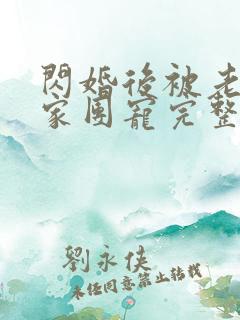 閃婚後被老
家團寵完整
劉永俠
未经同意禁止转载